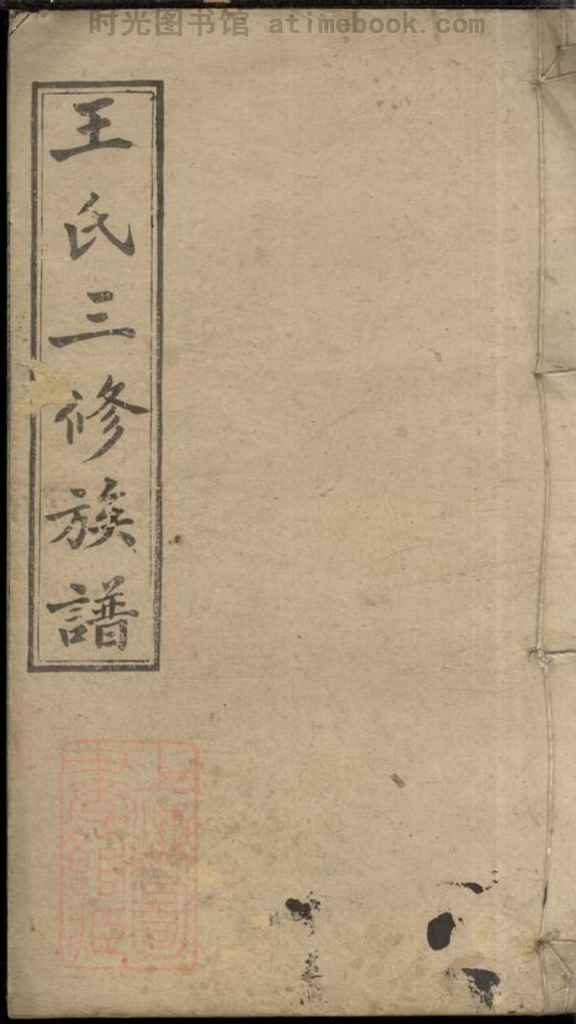 时光图书馆 atimebook.com
王氏三修族譜